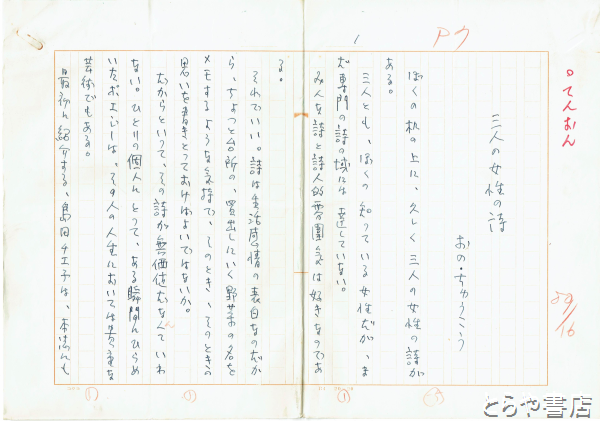 1
P7
○てんおん
三人の女性の詩
おの・ちゅうこう
ぼくの机の上に、久しく三人の女性の詩が
ある。
三人とも、ぼくの知っている女性だが、ま
だ専門の詩の域には達していない。
みんな詩と詩人的雰囲気は好きなのであ
る。
それでいい。詩は生活感情の表白なのだか
ら、ちょっと台所の、買出しにいく野菜の名を
メモするような気持で、そのとき、そのときの
思いを書きとっておけばよいではないか。
だからといって、その詩が無価値だなんていわ
ん
ない。ひとりの個人にとって、ある瞬間にひらめ
いたポエジーは、その人の人生においては貴重な
芸術でもある。
最初に紹介する、島田チエ子は、本誌にも
59/16
とらや書店